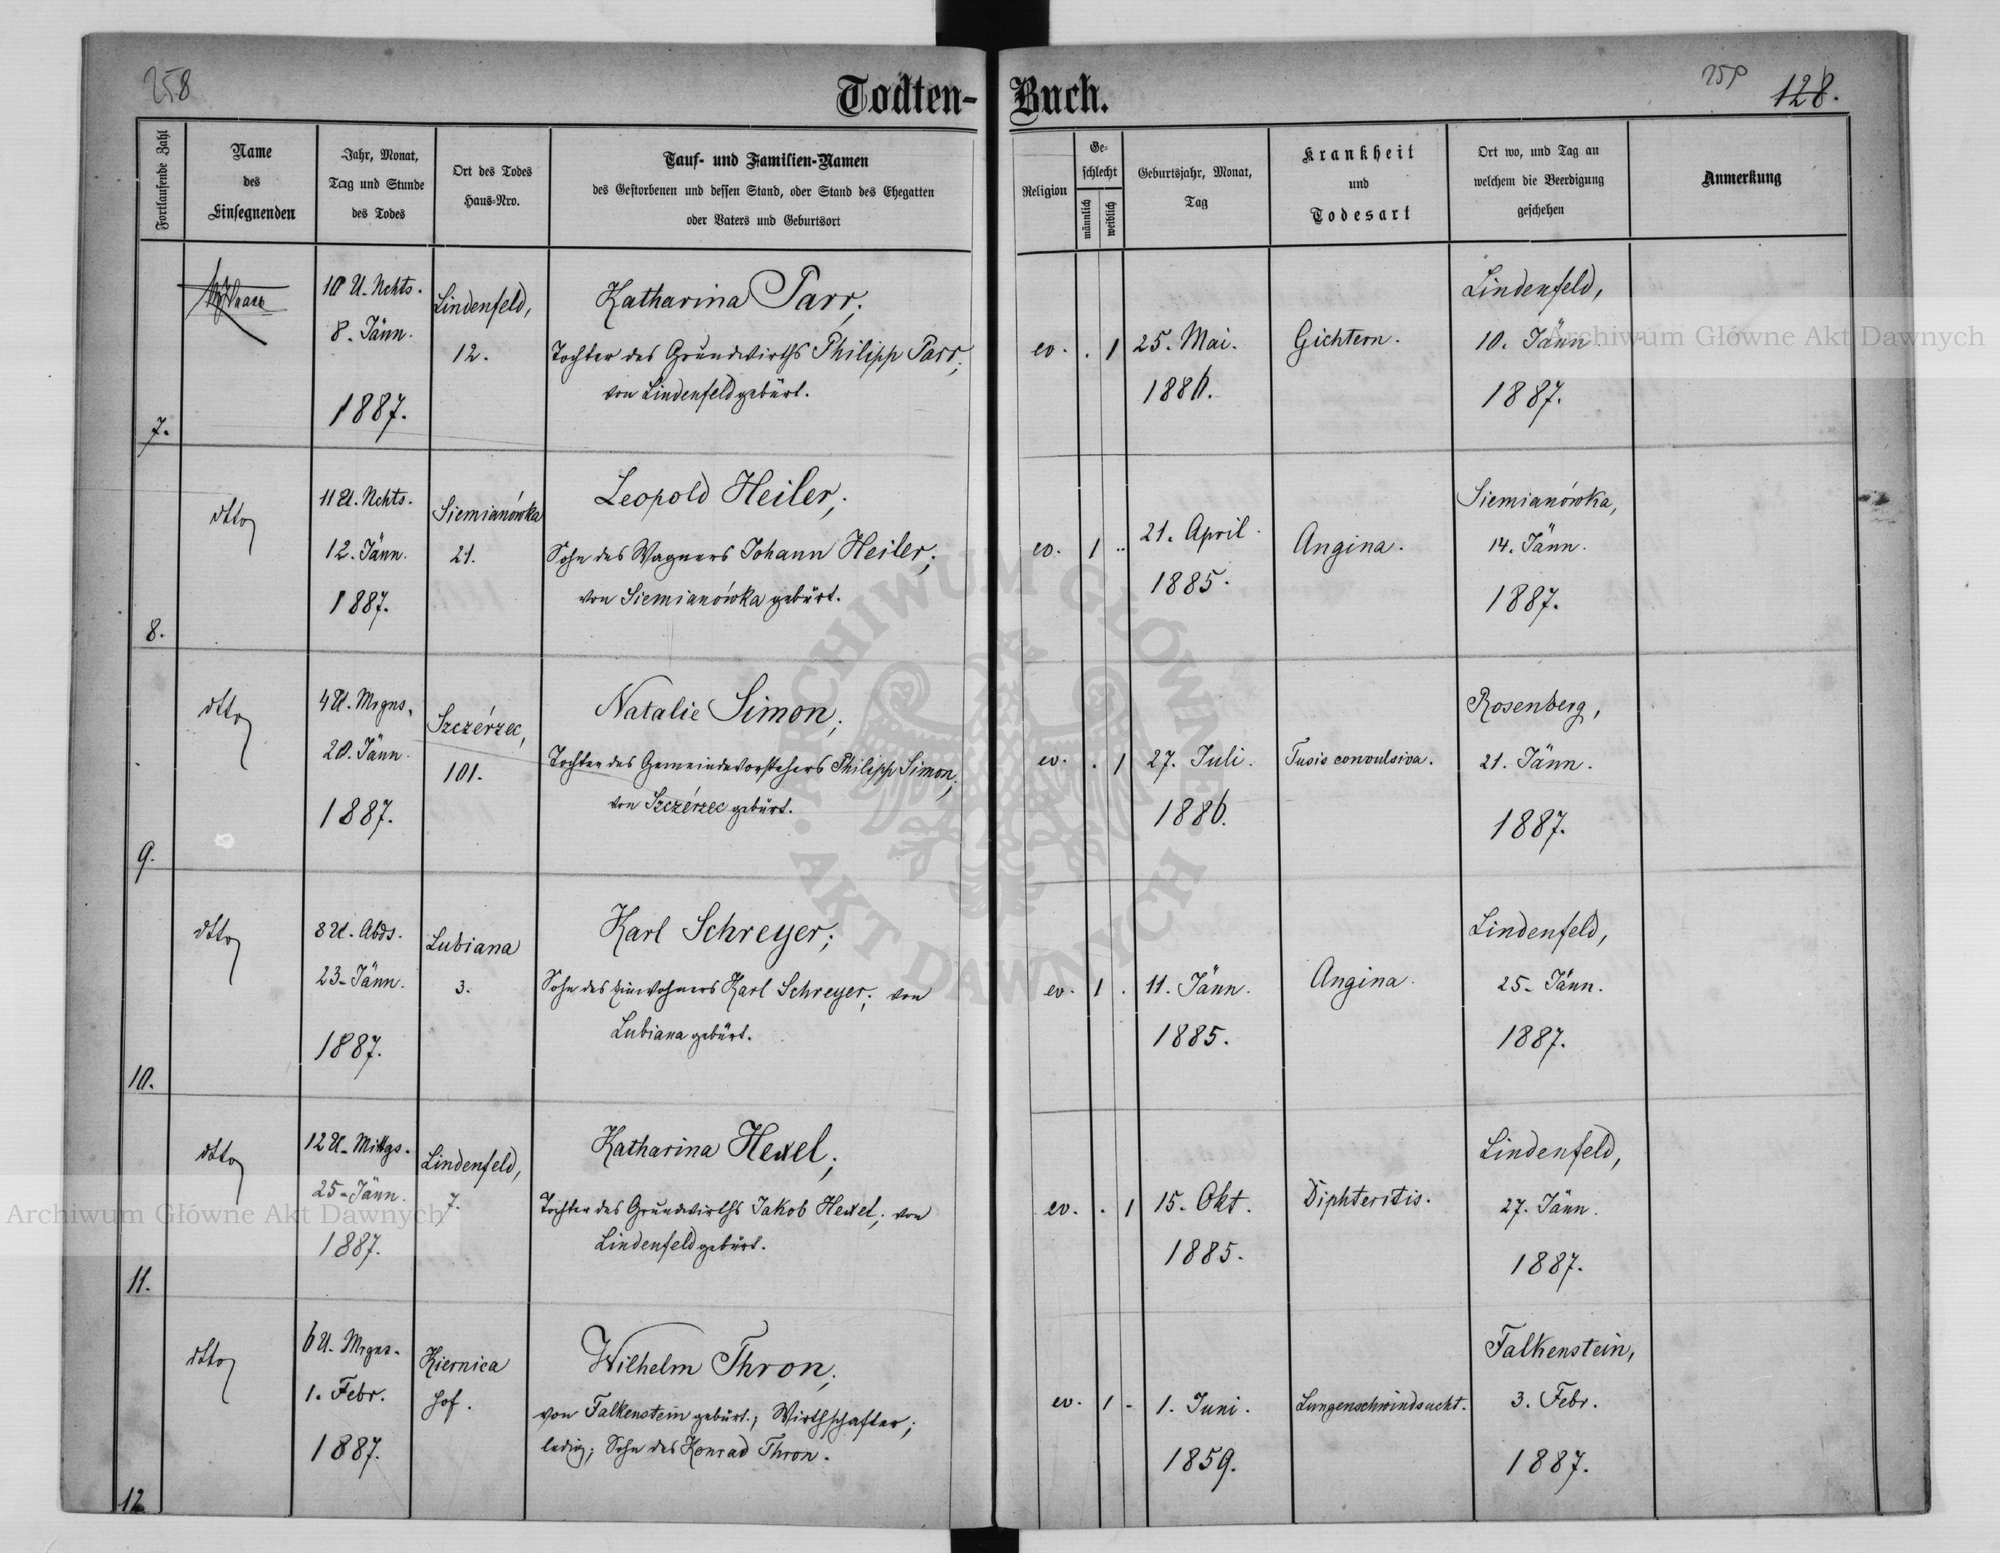 258
Todten-
Fortlaufende Zahl
Name
des
Einsegnenden
Jahr, Monat,
Tag und Stunde
des Todes
Ort des Todes
Haus-Nro.
Tauf- und Familien-Namen
des Gestorbenen und dessen Stand, oder Stand des Ehegatten
oder Vaters und Geburtsort
7.
10 U. Nchts.
8. Jänn.
1887.
Lindenfeld,
12.
Katharina Parr,
Tochter des Grundwirths Philipp Parr,
von Lindenfeld gebürt.
8.
dtto
11 U. Nchts.
12. Jänn.
1887.
Siemianówka
21.
Leopold Heiler,
Sohn des Wagners Johann Heiler,
von Siemianówka gebürt.
9.
dtto
4 U. Mrgns.
20. Jänn.
1887.
Szczérzec,
101.
Natalie Simon,
Tochter des Gemeindevorstehers Philipp Simon,
von Szczérzec gebürt.
10.
dtto
8 U. Abds.
23. Jänn.
1887.
Lubiana
3.
Karl Schreyer;
Sohn des Einwohners Karl Schreyer; von
Lubiana gebürt.
11.
dtto
12 U. Mittgs.
25. Jänn.
1887.
Lindenfeld,
7.
Katharina Hexel,
Tochter des Grundwirths Jakob Hexel, von
Lindenfeld gebürt.
12
dtto
6 U. Mrgns.
1. Febr.
1887.
Kiernica
Hof.
Wilhelm Thron,
von Falkenstein gebürt.; Wirthschafter;
ledig; Sohn des Konrad Thron.
Buch.
128.
Religion
Ge-
schlecht
männlich
weiblich
Geburtsjahr, Monat,
Tag
Krankheit
und
Todesart
Ort wo, und Tag an
welchem die Beerdigung
geschehen
Anmerkung
ev. . 1
25. Mai.
1886.
Gichtern.
Lindenfeld,
10. Jänn
1887.
ev. 1 ..
21. April.
1885.
Angina.
Siemianówka,
14. Jänn.
1887.
ev. . 1
27. Juli.
1886.
Tusis convulsiva.
Rosenberg,
21. Jänn.
1887.
ev. 1 .
11. Jänn.
1885.
Angina.
Lindenfeld,
25. Jänn.
1887.
ev. . 1
15. Okt.
1885.
Diphteritis.
Lindenfeld,
27. Jänn.
1887.
ev. 1 -
1. Juni.
1859.
Lungenschwindsucht.
Falkenstein,
3. Febr.
1887.
Archiwum Główne Akt Dawnych
Archiwum Główne Akt Dawnych
ARCHIWUM GŁÓWNE
AKT DAWNYCH